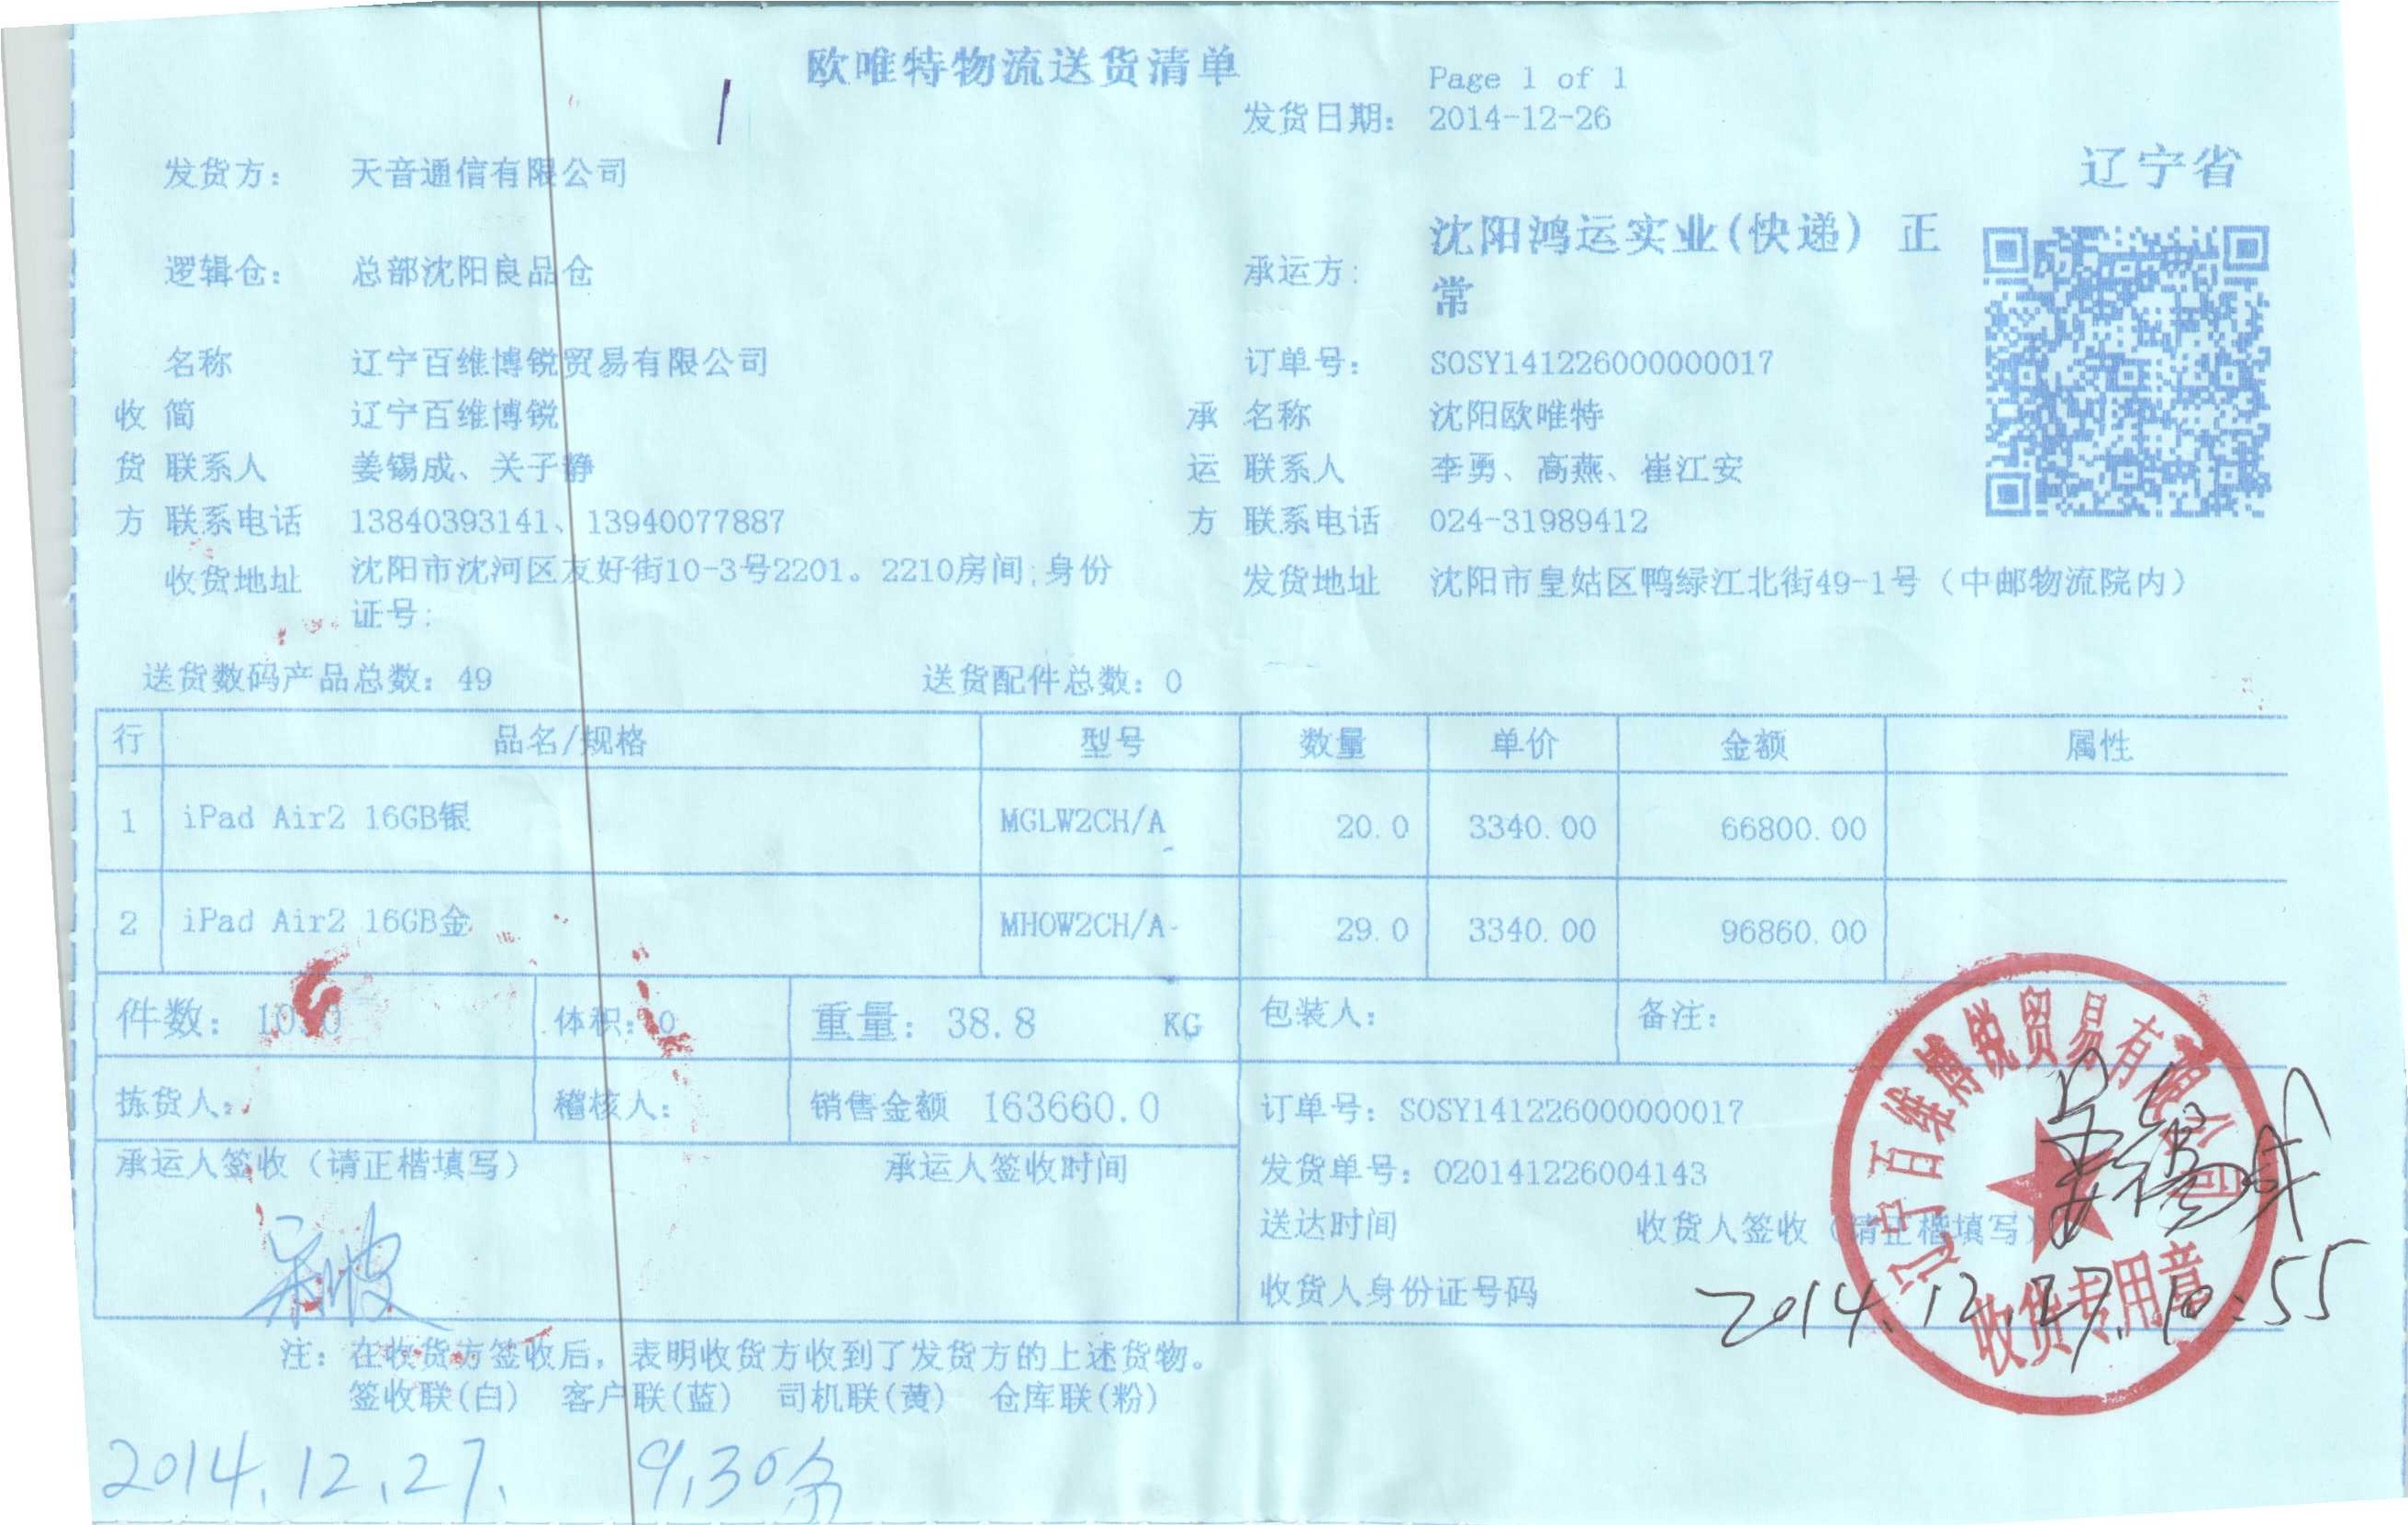 欧唯特物流送货清单
Page 1 of 1
发货日期: 2014-12-26
辽宁省
发货方: 天音通信有限公司
逻辑仓: 总部沈阳良品仓
承运方: 沈阳鸿运实业(快递) 正
常
名称 辽宁百维博锐贸易有限公司
订单号: SOSY141226000000017
收 简 辽宁百维博锐
承 名称 沈阳欧唯特
货 联系人 姜锡成、关子静
运 联系人 李勇、高燕、崔江安
方 联系电话 13840393141、13940077887
方 联系电话 024-31989412
收货地址 沈阳市沈河区友好街10-3号2201。2210房间;身份
证号:
发货地址 沈阳市皇姑区鸭绿江北街49-1号（中邮物流院内）
送货数码产品总数: 49 送货配件总数: 0
行 品名/规格 型号 数量 单价 金额 属性
1 iPad Air2 16GB银 MGLW2CH/A 20.0 3340.00 66800.00
2 iPad Air2 16GB金 MHOW2CH/A 29.0 3340.00 96860.00
件数: 体积: 0 重量: 38.8 KG 包装人: 备注:
拣货人: 稽核人: 销售金额 163660.0 订单号: SOSY141226000000017
承运人签收（请正楷填写） 承运人签收时间 发货单号: O20141226004143
送达时间 收货人签收（请正楷填写）
收货人身份证号码
姜锡成
2014.12.27. 10:55
辽宁百维博锐贸易有限公司
收货专用章
注: 在收货方签收后, 表明收货方收到了发货方的上述货物。
签收联(白) 客户联(蓝) 司机联(黄) 仓库联(粉)
2014.12.27. 9,30分